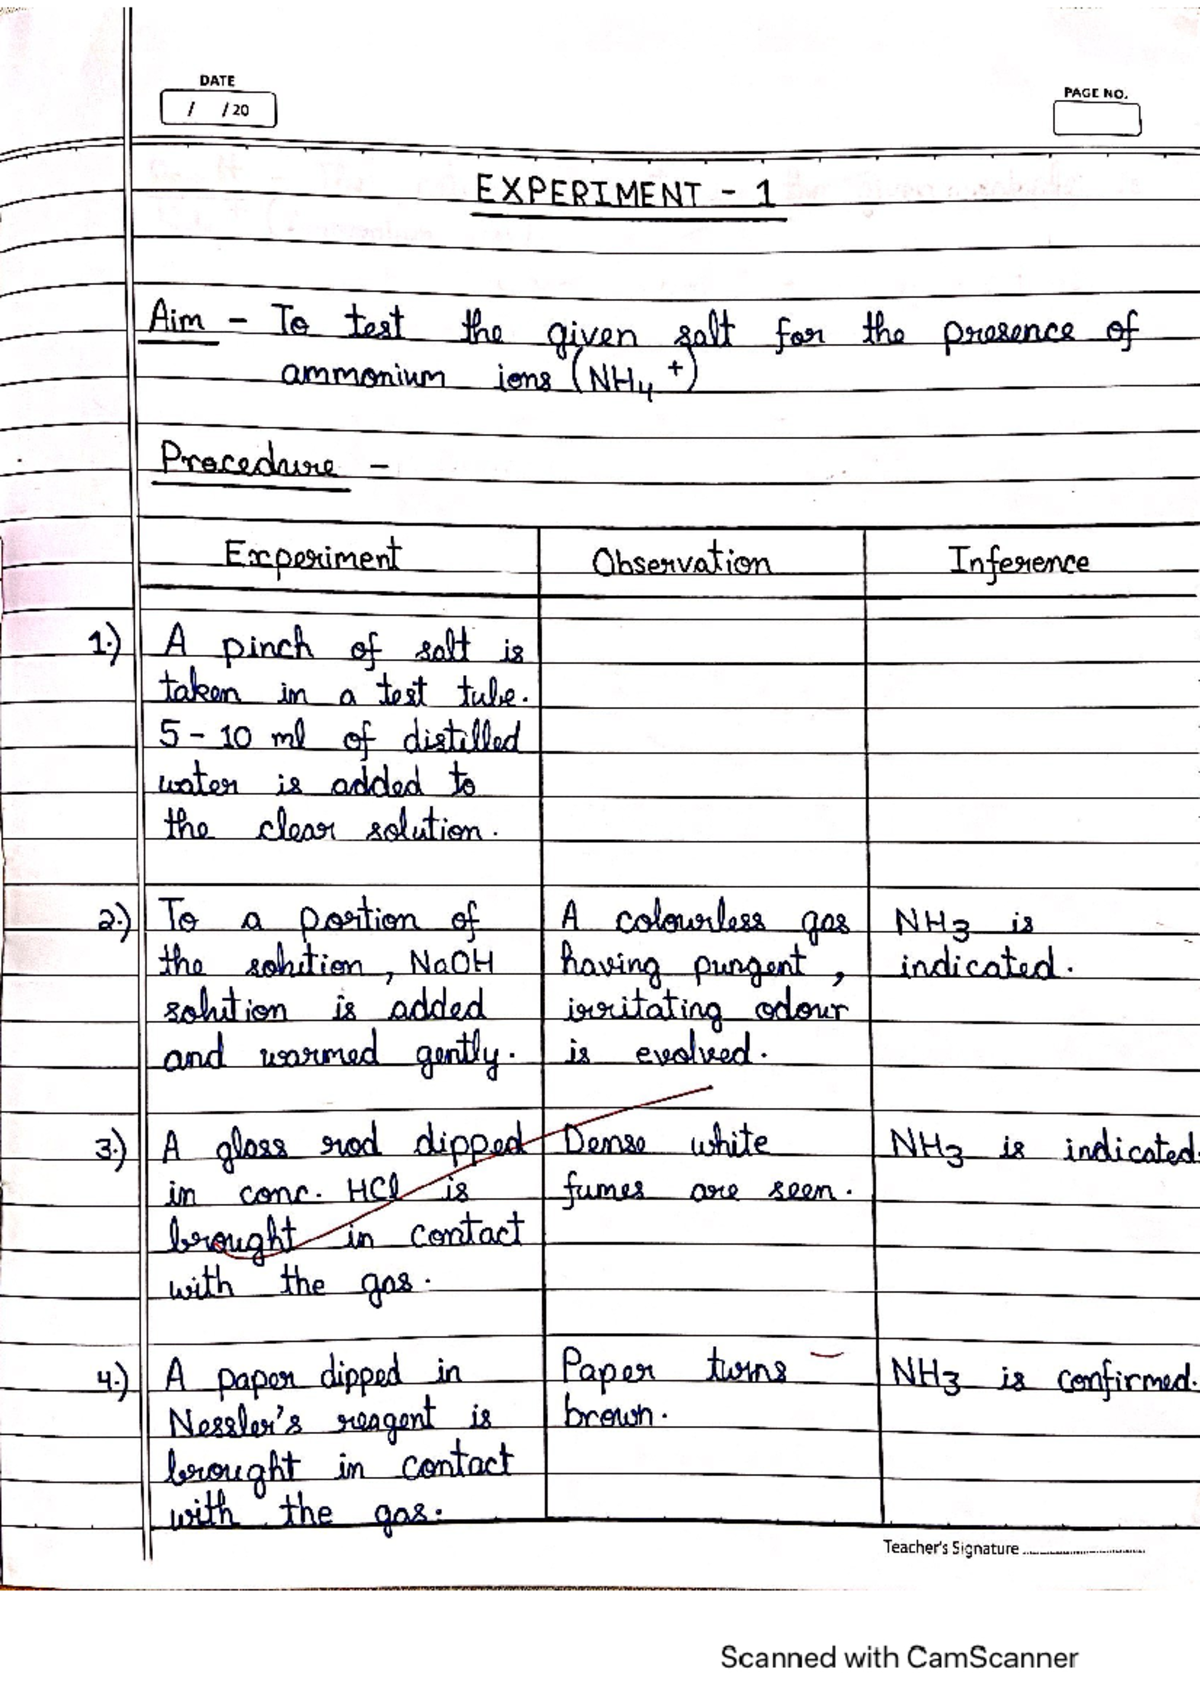 DATE
/ /20
PAGE NO.
EXPERIMENT - 1
Aim - To test the given salt for the presence of
ammonium ions (NH4+)
Procedure -
Experiment
Observation
Inference
1.) A pinch of salt is
taken in a test tube.
5-10 ml of distilled
water is added to
the clear solution.
2.) To a portion of
the solution, NaOH
solution is added
and warmed gently.
A colourless gas
having pungent,
irritating odour
is evolved.
NH3 is
indicated.
3.) A glass rod dipped
in conc. HCl is
brought in contact
with the gas.
Dense white
fumes are seen.
NH3 is indicated.
4.) A paper dipped in
Nessler's reagent is
brought in contact
with the gas.
Paper turns
brown.
NH3 is confirmed.
Teacher's Signature
Scanned with CamScanner